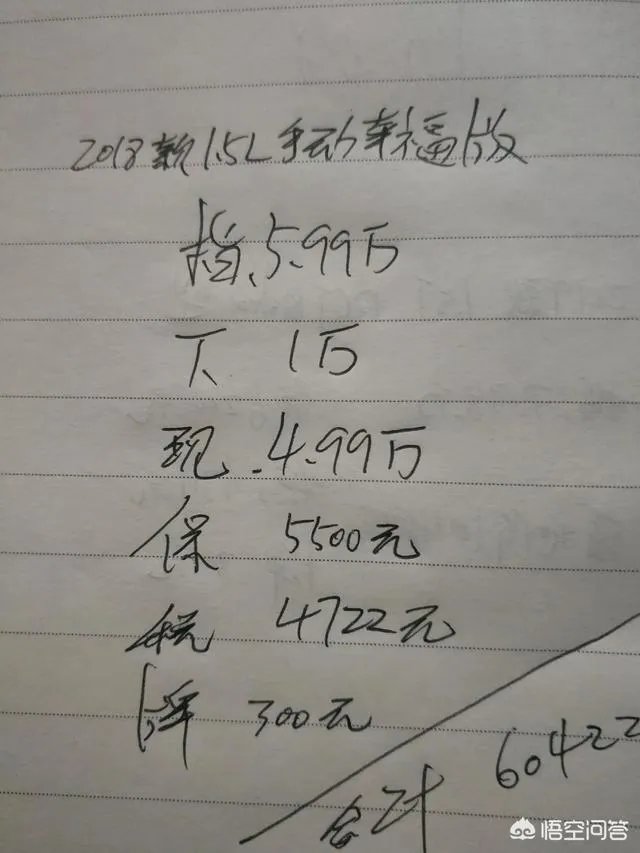 2018款1.5L手动幸福版
指.5.99万
下 1万
现.4.99万
保 5500元
税 4722元
牌 300元
合计 60422
悟空问答